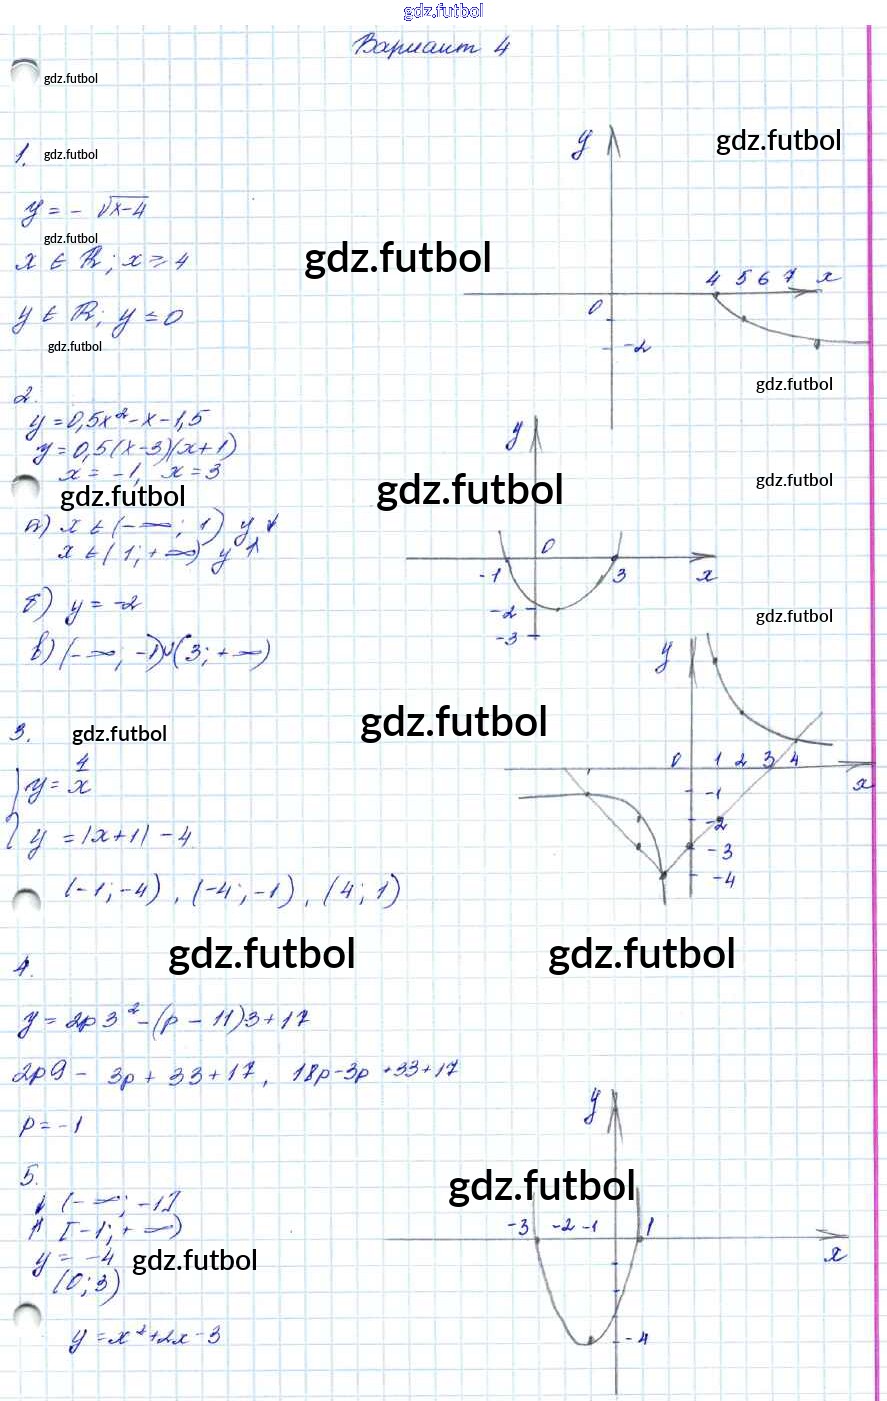 gdz.futbol
Вариант 4
gdz.futbol
1. gdz.futbol
y = - √x-4
gdz.futbol
x ∈ R; x ≥ 4
y ∈ R; y ≤ 0
gdz.futbol
y
gdz.futbol
gdz.futbol
4 5 6 7 x
0
-2
gdz.futbol
2.
y = 0,5x² - x - 1,5
y = 0,5(x-3)(x+1)
x = -1, x = 3
gdz.futbol
а) x ∈ (-∞; 1) y ↓
x ∈ (1; +∞) y ↑
б) y = -2
в) (-∞; -1)∪(3; +∞)
y
gdz.futbol
gdz.futbol
0
-1 3 x
-2
-3
gdz.futbol
3. gdz.futbol
y = 4/x
y = |x+1| - 4
(-1; -4), (-4; -1), (4; 1)
gdz.futbol
y
0 1 2 3 4
x
-1
-2
-3
-4
gdz.futbol gdz.futbol
4.
y = 2p3² - (p - 11)3 + 17
2p9 - 3p + 33 + 17, 18p - 3p + 33 + 17
p = -1
5.
↓ (-∞; -1]
↑ [-1; +∞)
y = -4
gdz.futbol
(0; 3)
y = x² + 2x - 3
y
gdz.futbol
-3 -2 -1 1
x
-4